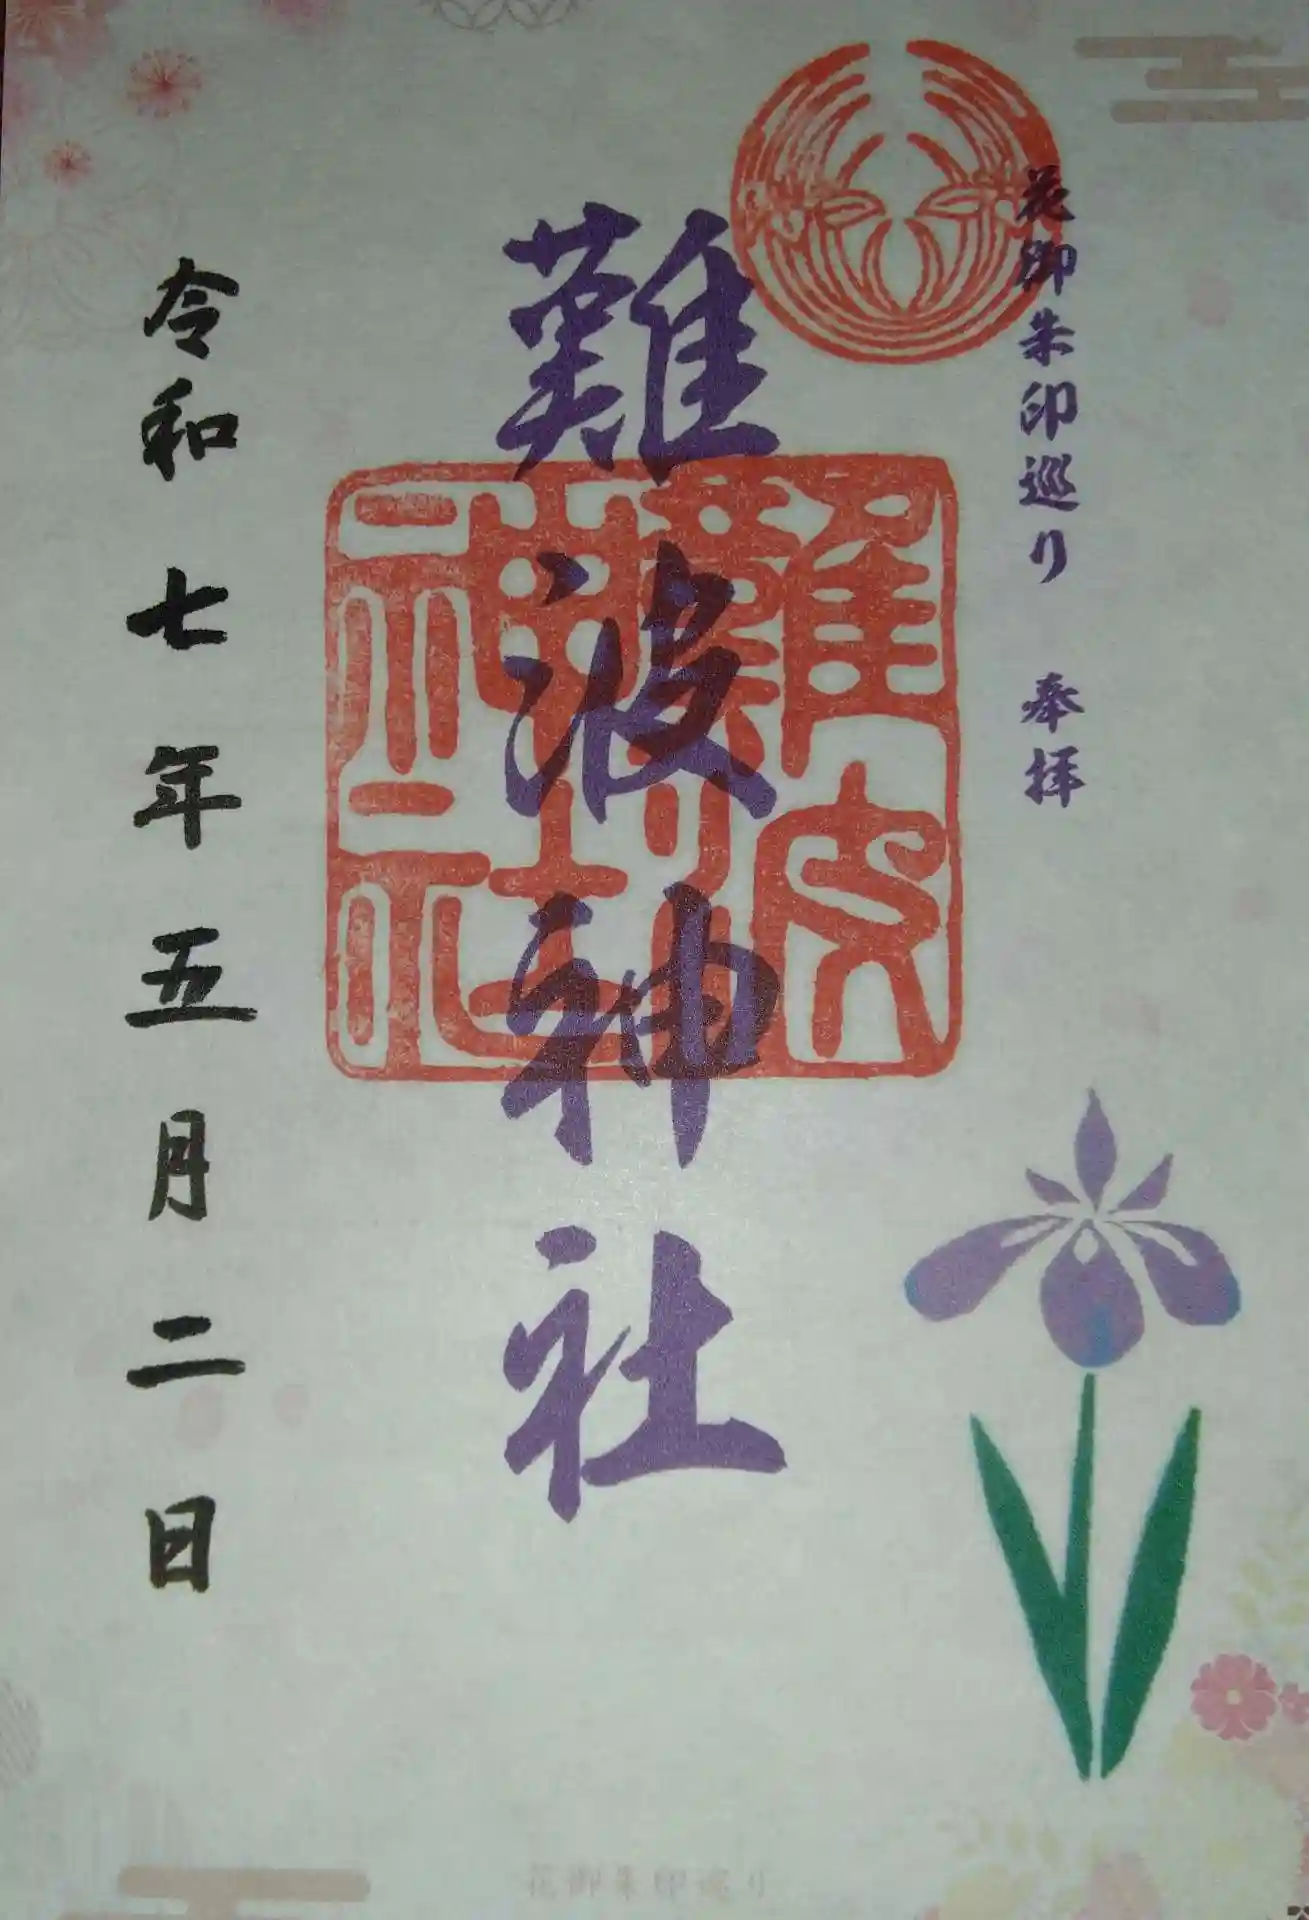 花御朱印巡り 奉拝
難波神社
難波神社
令和七年五月二日
花御朱印巡り